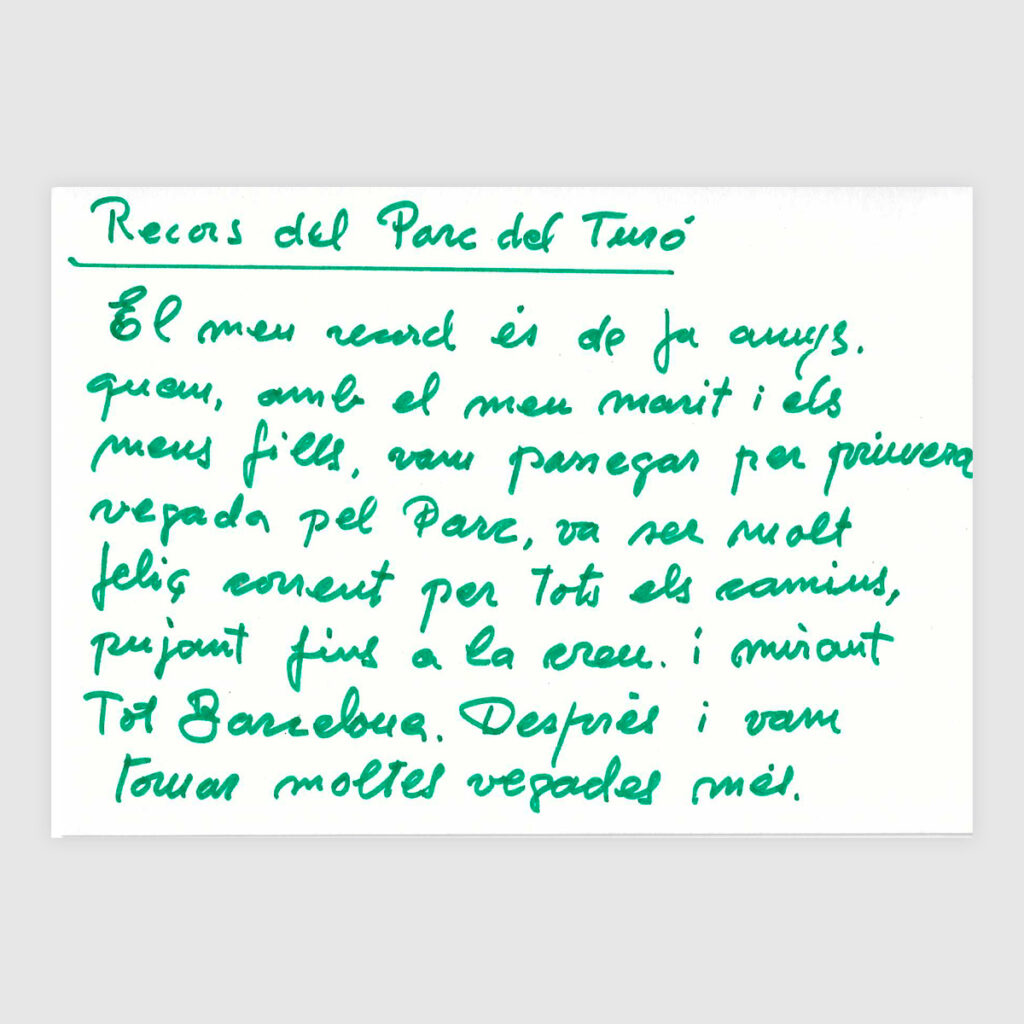 Recors del Parc del Turó
El meu record és de fa anys.
quan, amb el meu marit i els
meus fills, vam passegar per primera
vegada pel Parc, va ser molt
feliç corrent per tots els camins,
pujant fins a la creu. i mirant
Tot Barcelona. Després i vam
tornar moltes vegades més.